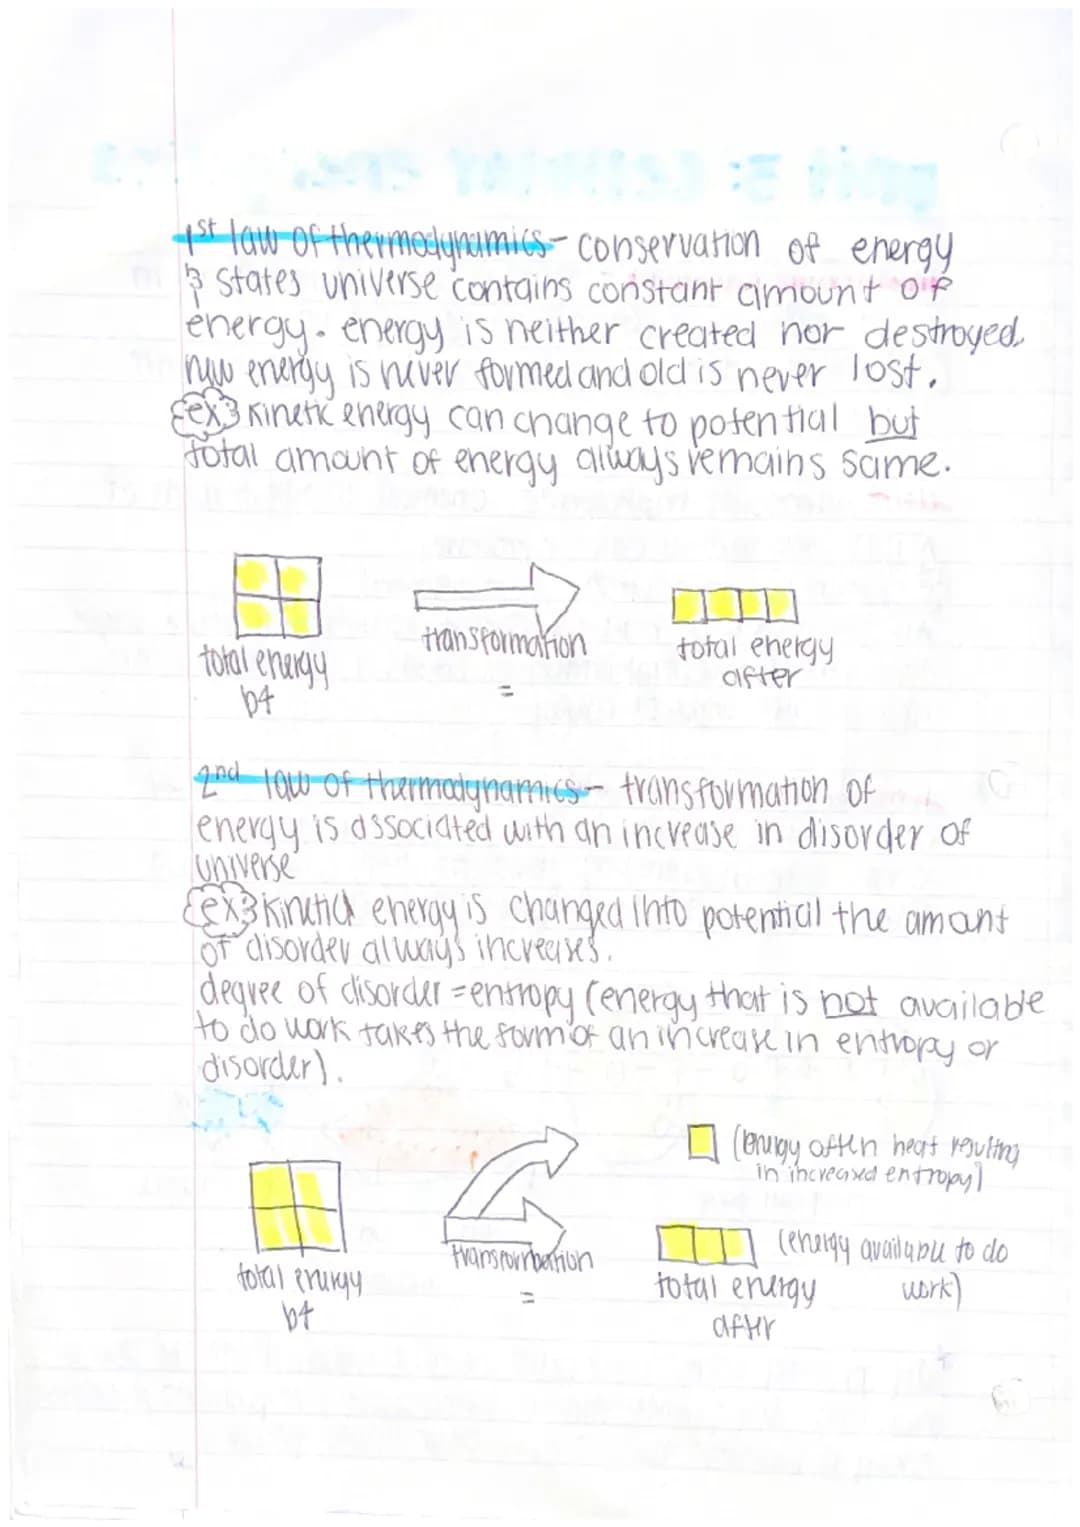 1st law of thermodynamics- conservation of energy
states universe contains constant amount of
energy. energy is neither created nor destroyed.
new energy is never formed and old is never lost.
ex kinetic energy can change to potential but
total amount of energy always remains same.
total energy
b4
transformation
=
total energy
after
2nd law of thermodynamics- transformation of
energy is associated with an increase in disorder of
universe
ex kinetic energy is changed into potential the amont
of disorder always increases.
degree of disorder = entropy (energy that is not available
to do work takes the form of an increase in entropy or
disorder).
(energy often heat resulting
in increased entropy)
total energy
b4
transformation
=
(energy available to do
work)
total energy
after